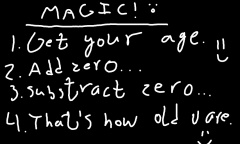 MAGIC!
1. Get your age.
2. Add zero...
3. Substract zero...
4. That's how old u are.